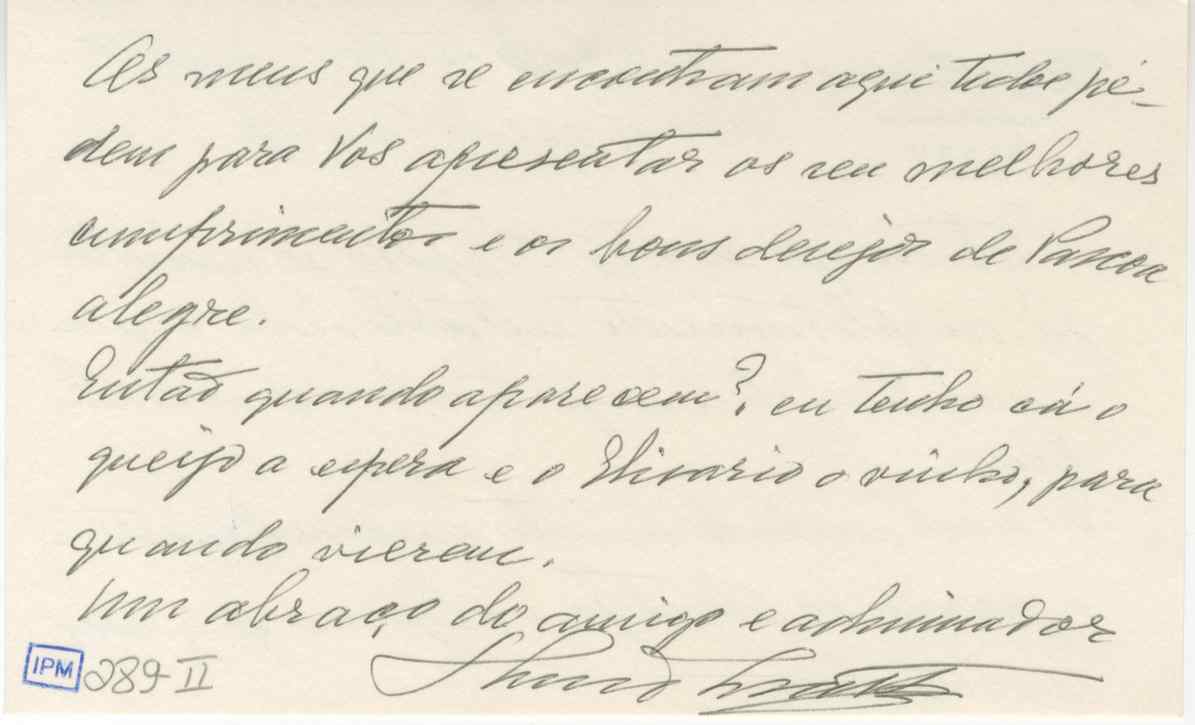 Os meus que se encontram aqui todos pé-
dem para Vos apresentar os seu melhores
cumprimentos e os bons desejos de Pascoa
alegre.
Então quando aparecem? eu tenho cá o
queijo a espera e o Elisario o vinho, para
quando vierem.
Um abraço do amigo e admirador
IPM 289-II